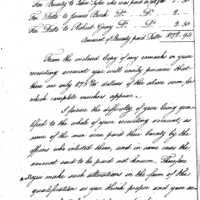 For Bounty to John Tyler who was paid in
For Ditto to James Bush Do Do 2.50
For Ditto to Robert Gray Do Do 2.50
Amount of Bounty paid Dollrs 1072.94
From the inclosed Copy of my remarks on your
recruiting account you will easily perceive that
there are only dollars of the above sum, for
which complete vouchers appear.
I foresee the difficulty of your being qua-
lified to the whole of your recruiting account, as
some of the men were paid their bounty by the
officers who inlisted them, and in some cases the
amount said to be paid not known. Therefore
you make such alterations in the form of the
qualification as you think proper and you